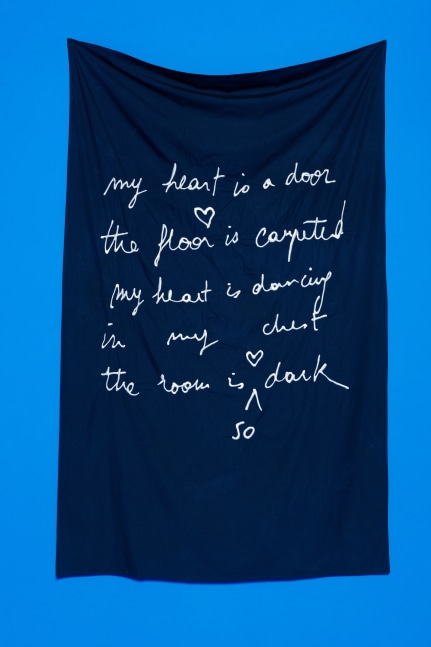 my heart is a door
the floor is carpeted
my heart is dancing
in my chest
the room is dark
so